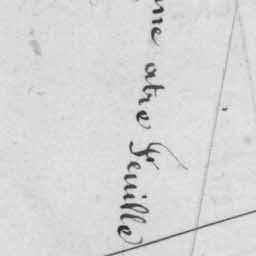 me atre Feuille